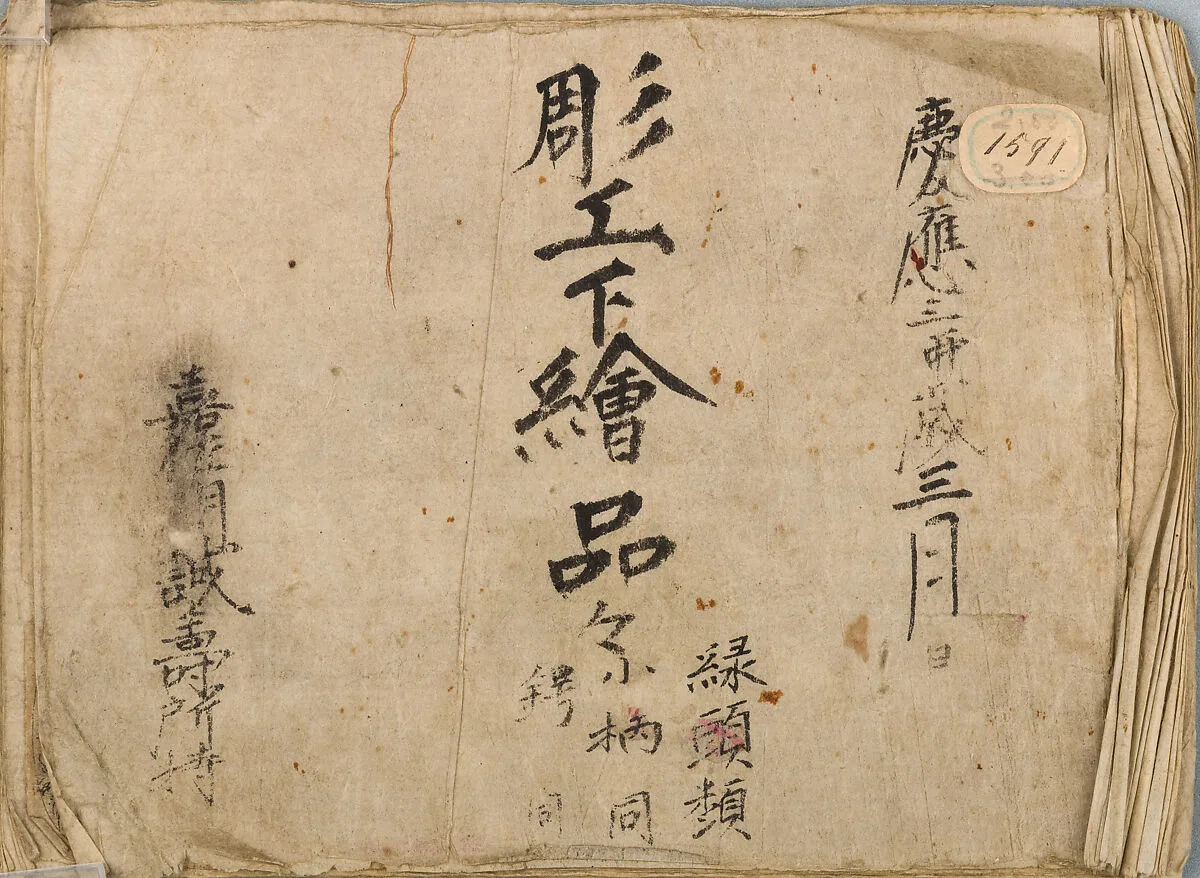 慶應三卯歳三月 日
1591
彫工下繪品々
縁頭類
小柄同
鍔同
誠壽所持